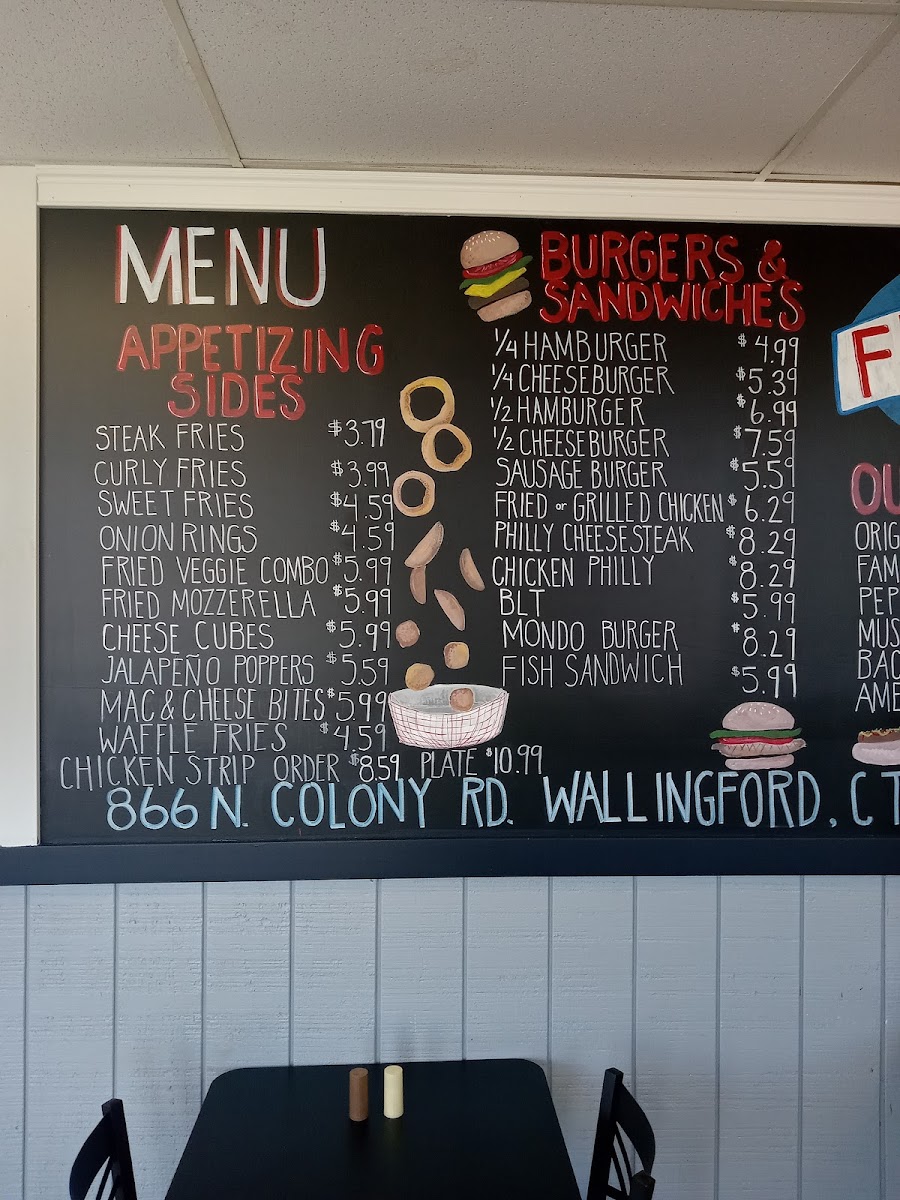 MENU
APPETIZING
SIDES
STEAK FRIES $3.79
CURLY FRIES $3.99
SWEET FRIES $4.59
ONION RINGS $4.59
FRIED VEGGIE COMBO $5.99
FRIED MOZZERELLA $5.99
CHEESE CUBES $5.99
JALAPEÑO POPPERS $5.59
MAC & CHEESE BITES $5.99
WAFFLE FRIES $4.59
CHICKEN STRIP ORDER $8.59 PLATE $10.99
BURGERS &
SANDWICHES
1/4 HAMBURGER $4.99
1/4 CHEESEBURGER $5.39
1/2 HAMBURGER $6.99
1/2 CHEESEBURGER $7.59
SAUSAGE BURGER $5.59
FRIED or GRILLED CHICKEN $6.29
PHILLY CHEESESTEAK $8.29
CHICKEN PHILLY $8.29
BLT $5.99
MONDO BURGER $8.29
FISH SANDWICH $5.99
F
OU
ORIG
FAM
PEP
MUS
BAC
AME
866 N. COLONY RD. WALLINGFORD, CT